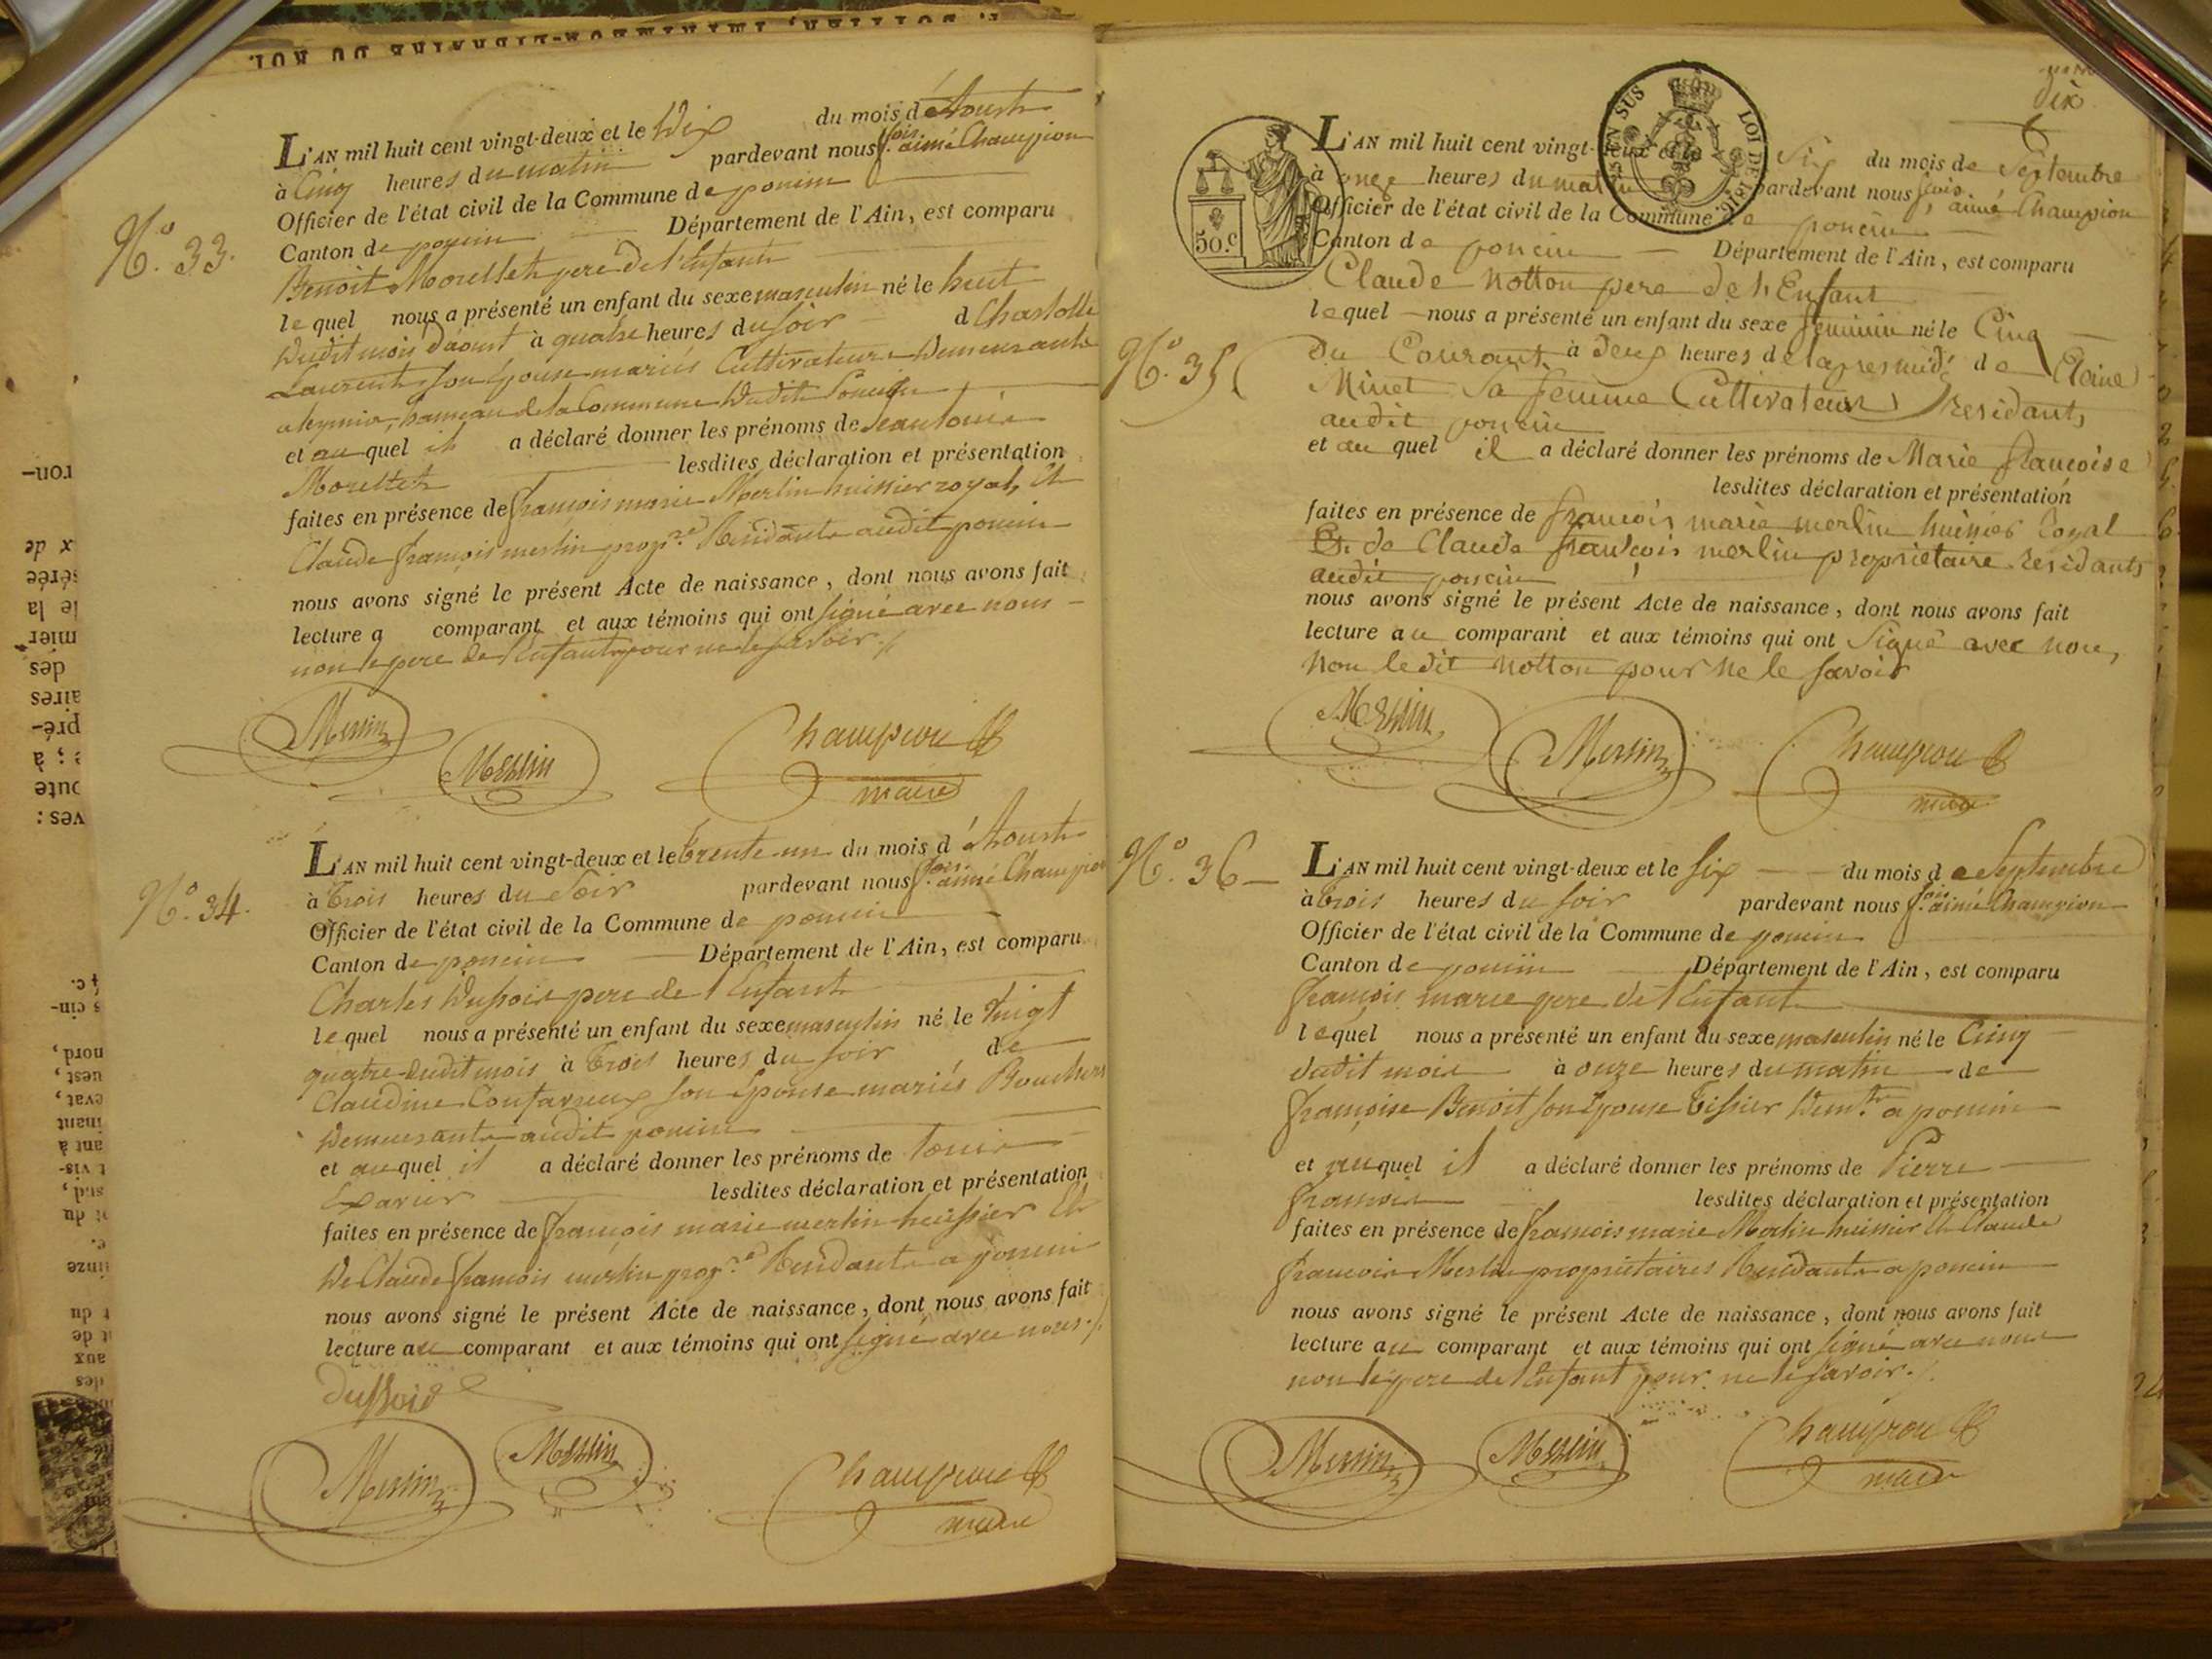 L'AN mil huit cent vingt-deux et le Dix du mois d'Aoust
à Cinq heures du matin pardevant nous f.ois aimé Champion
Officier de l'état civil de la Commune de poncin
Canton de poncin Département de l'Ain, est comparu
N.o 33.
Benoit Morellet pere de l'Enfant
lequel nous a présenté un enfant du sexe masculin né le huit
Dudit mois d'aoust à quatre heures du soir d Charlotte
Laurent son Epouse mariés Cultivateurs Demeurants
hameau de la Commune Dudit Poncin
et au quel il a déclaré donner les prénoms de Jean louis
Morellet lesdites déclaration et présentation
faites en présence de françois marie Merlin huissier royal, Et
Claude françois merlin prop.re Residants audit poncin
nous avons signé le présent Acte de naissance, dont nous avons fait
lecture a comparant et aux témoins qui ont signé avec nous
non le pere de l'Enfant pour ne le savoir ./.
Merlin
Merlin
Champion
maire
L'AN mil huit cent vingt-deux et le trente-un du mois d'Aoust
N.o 34.
à trois heures du soir pardevant nous f.ois aimé Champion
Officier de l'état civil de la Commune de poncin
Canton de poncin Département de l'Ain, est comparu
Charles Dussois pere de l'Enfant
lequel nous a présenté un enfant du sexe masculin né le vingt
quatre dudit mois à trois heures du soir de
Claudine son Epouse mariés Bouchers
Demeurants audit poncin
et au quel il a déclaré donner les prénoms de Louis
Exavier lesdites déclaration et présentation
faites en présence de françois marie merlin huissier Et
De Claude francois merlin prop.re Residants a poncin
nous avons signé le présent Acte de naissance, dont nous avons fait
lecture au comparant et aux témoins qui ont signé avec nous ./.
Dussoid
Merlin
Merlin
Champion
maire
dix
50.c
EN SUS
LOI DE 1816
L'AN mil huit cent vingt-deux et le Six du mois de Septembre
à onze heures du matin pardevant nous f.ois aimé Champion
Officier de l'état civil de la Commune de poncin
Canton de poncin Département de l'Ain, est comparu
Claude Notton pere de l'Enfant
lequel nous a présenté un enfant du sexe feminin né le Cinq
N.o 35
Du Courant à deux heures de lapresmidi de Claine
Minet Sa femme Cultivateurs residants
audit poncin
et au quel il a déclaré donner les prénoms de Marie françoise
lesdites déclaration et présentation
faites en présence de françois marie merlin huissier Royal
Et de Claude françois merlin propriétaire residants
audit poncin
nous avons signé le présent Acte de naissance, dont nous avons fait
lecture au comparant et aux témoins qui ont Signé avec nous,
Non le dit Notton pour Ne le savoir
Merlin
Merlin
Champion
maire
N.o 36
L'AN mil huit cent vingt-deux et le six du mois de Septembre
à trois heures du soir pardevant nous f.ois aimé Champion
Officier de l'état civil de la Commune de poncin
Canton de poncin Département de l'Ain, est comparu
françois marie pere de l'Enfant
lequel nous a présenté un enfant du sexe masculin né le Cinq
dudit mois à onze heures du matin de
françoise Benoit son Epouse tissier Dem.ts a poncin
et auquel il a déclaré donner les prénoms de Pierre
francois lesdites déclaration et présentation
faites en présence de francois marie Merlin huissier Et Claude
francois Merlin propriétaires Residants a poncin
nous avons signé le présent Acte de naissance, dont nous avons fait
lecture au comparant et aux témoins qui ont signé avec nous
non le pere de l'Enfant pour ne le savoir ./.
Merlin
Merlin
Champion
maire